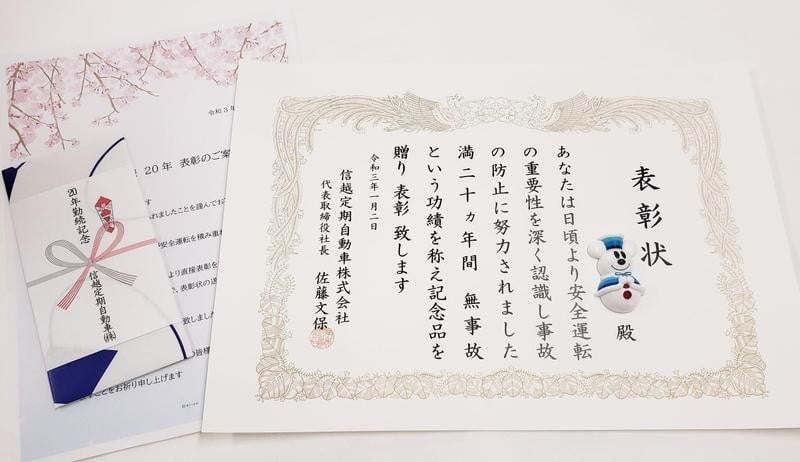 表彰状
殿
あなたは日頃より安全運転
の重要性を深く認識し事故
の防止に努力されました
満二十ヵ年間 無事故
という功績を称え記念品を
贈り 表彰 致します
令和三年一月二日
信越定期自動車株式会社
代表取締役社長 佐藤文保
20年勤続記念
信越定期自動車㈱
令和3年
20年 表彰のご案
す
れましたことを謹んでお
安全運転を積み重
より直接表彰を
、表彰状の送
致しました
の皆様
ことをお祈り申し上げます